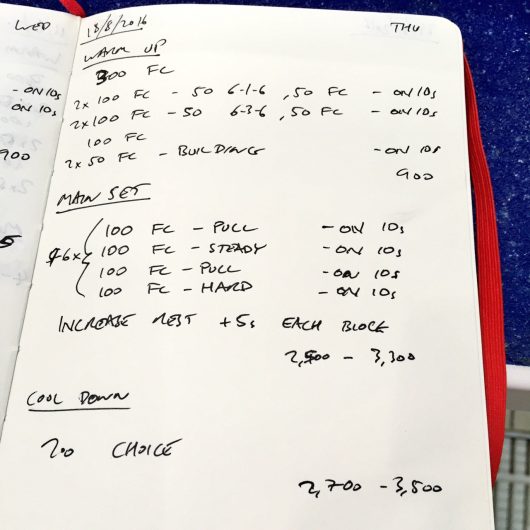 WED
- ON 10s
ON 10s
900
5
18/8/2016 THU
WARM UP
300 FC
2x 100 FC - 50 6-1-6, 50 FC - ON 10s
2x 100 FC - 50 6-3-6, 50 FC - ON 10s
100 FC
2x 50 FC - BUILDING - ON 10s
900
MAIN SET
4-6x
100 FC - PULL - ON 10s
100 FC - STEADY - ON 10s
100 FC - PULL - ON 10s
100 FC - HARD - ON 10s
INCREASE REST +5s EACH BLOCK
2,500 - 3,300
COOL DOWN
200 CHOICE
2,700 - 3,500